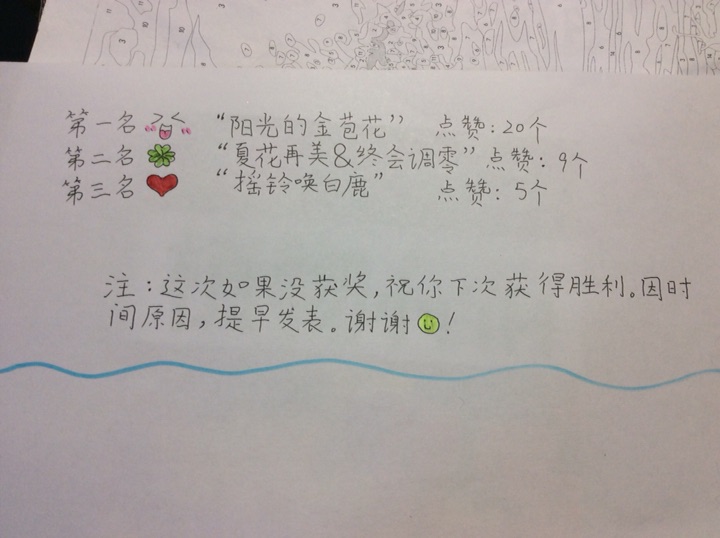 第一名 "阳光的金苞花" 点赞：20个
第二名 "夏花再美&终会调零" 点赞：9个
第三名 "摇铃唤白鹿" 点赞：5个
注：这次如果没获奖，祝你下次获得胜利。因时
间原因，提早发表。谢谢！